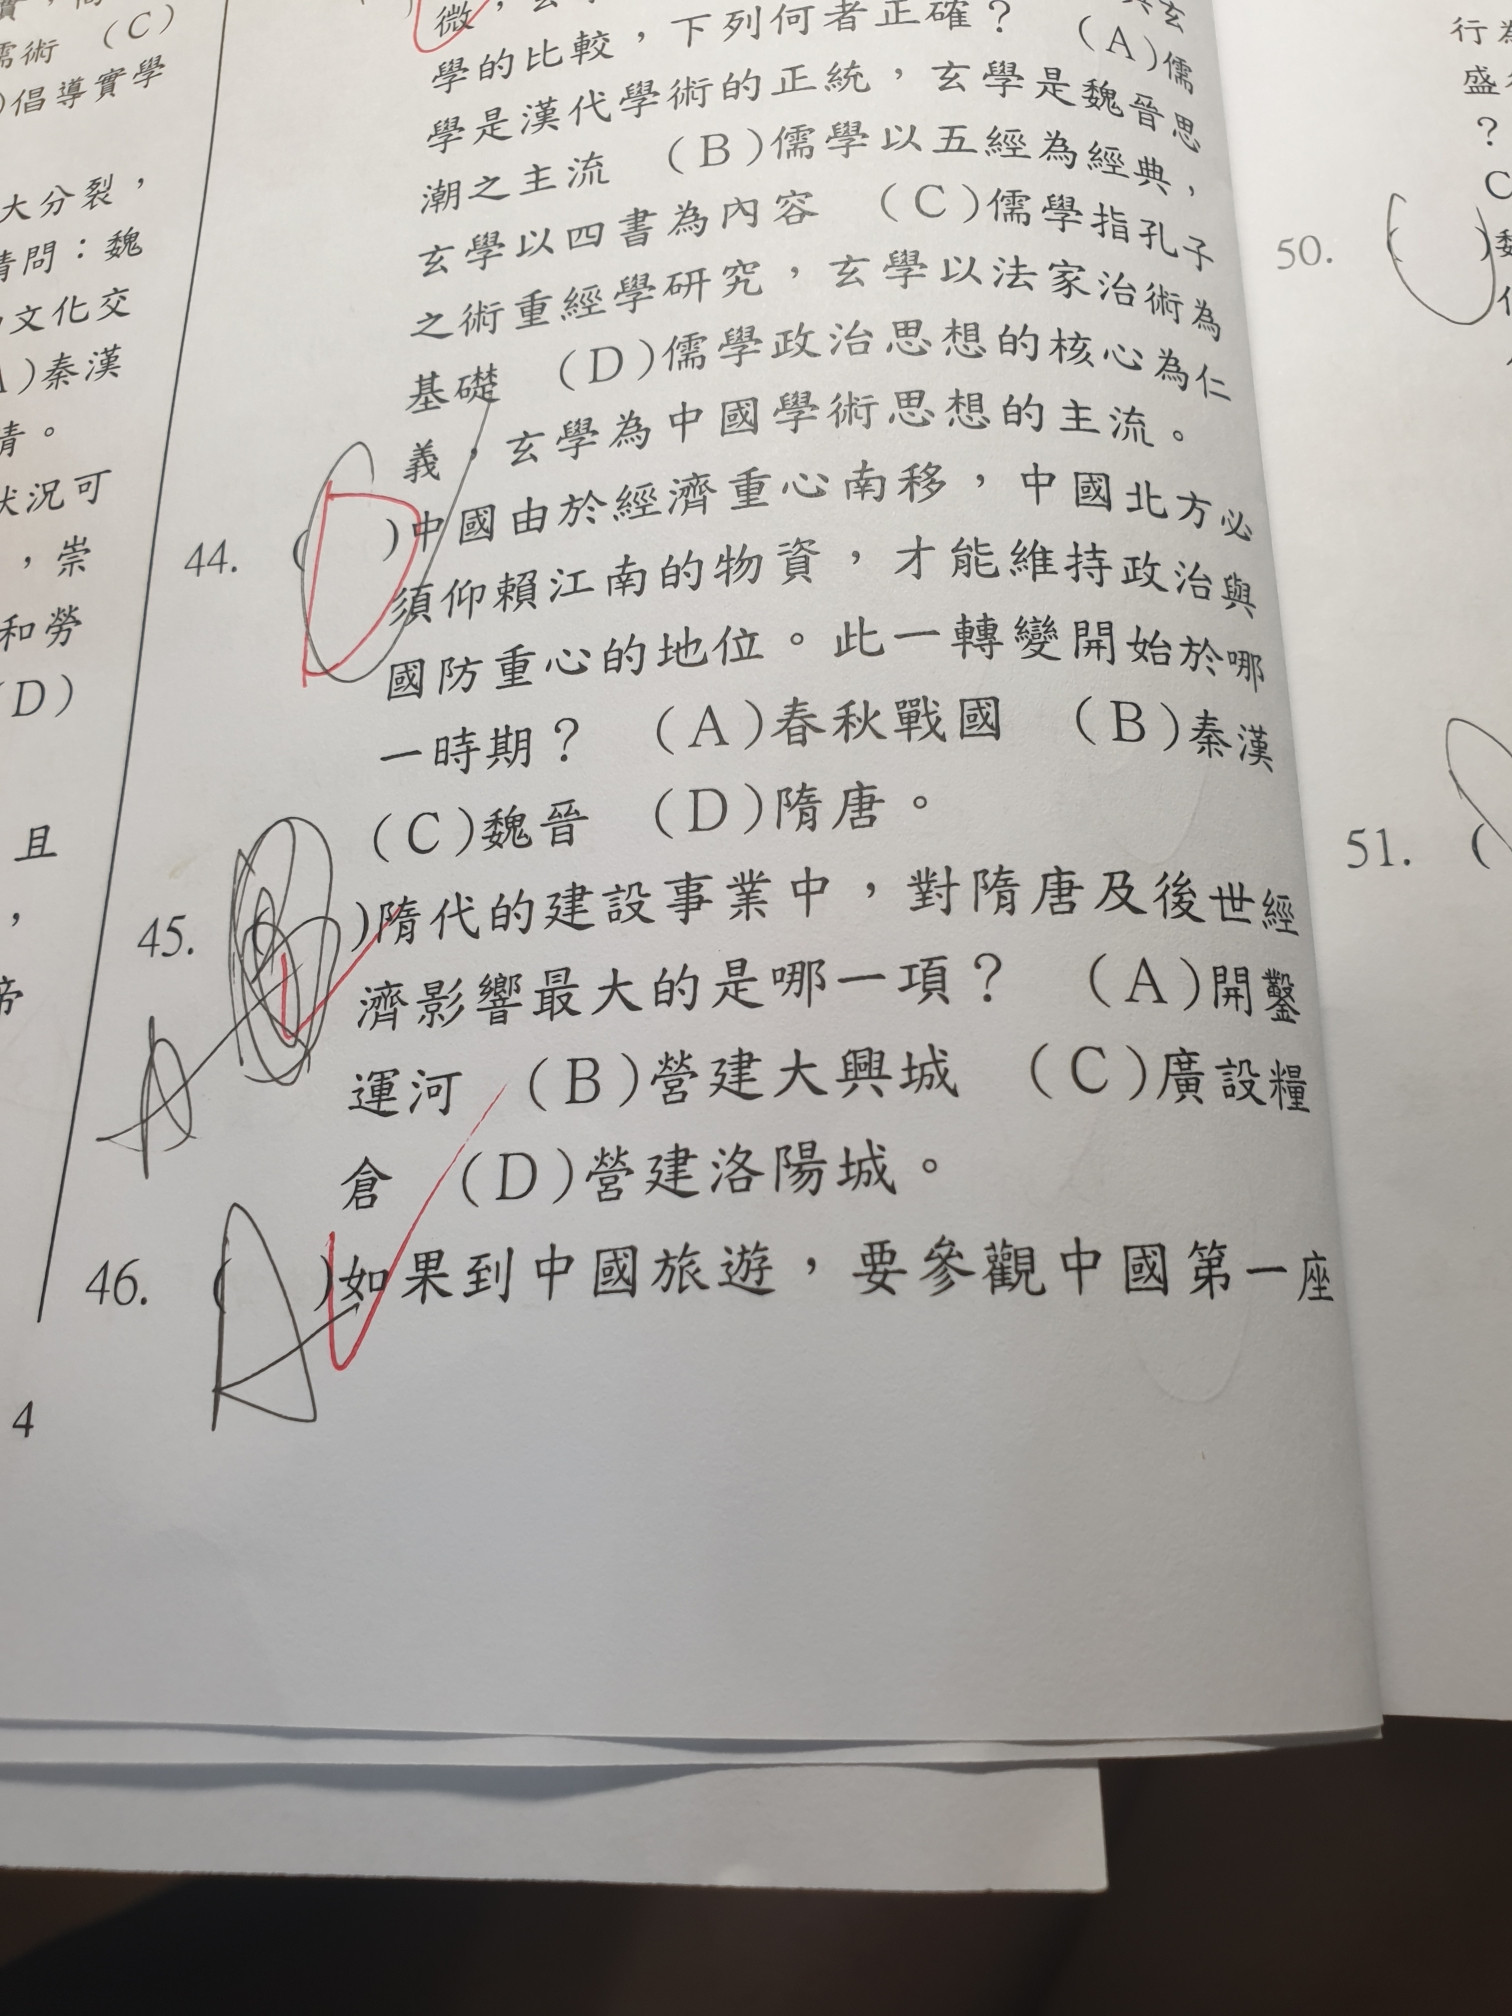 需術 (C)
)倡導實學
大分裂，
請問：魏
文化交
)秦漢
清。
狀況可
，崇
和勞
(D)
且
，
帝
4
微，
學的比較，下列何者正確？ (A)儒
學是漢代學術的正統，玄學是魏晉思
潮之主流 (B)儒學以五經為經典，
玄學以四書為內容 (C)儒學指孔子
之術重經學研究，玄學以法家治術為
基礎 (D)儒學政治思想的核心為仁
義，玄學為中國學術思想的主流。
44. ( D )中國由於經濟重心南移，中國北方必
須仰賴江南的物資，才能維持政治與
國防重心的地位。此一轉變開始於哪
一時期？ (A)春秋戰國 (B)秦漢
(C)魏晉 (D)隋唐。
45. ( )隋代的建設事業中，對隋唐及後世經
A
濟影響最大的是哪一項？ (A)開鑿
運河 (B)營建大興城 (C)廣設糧
倉 (D)營建洛陽城。
46. ( A )如果到中國旅遊，要參觀中國第一座
行為
盛
？
C
50. ( )
51. (